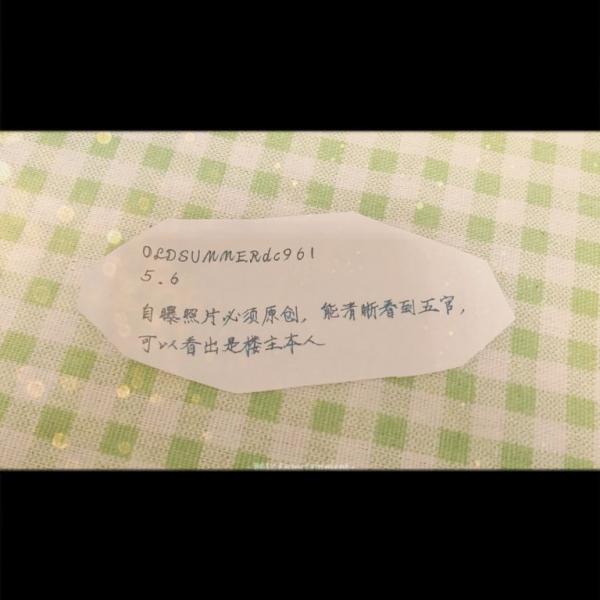 OLDSUMMERdc961
5.6
自曝照片必须原创，能清晰看到五官，
可以看出是楼主本人